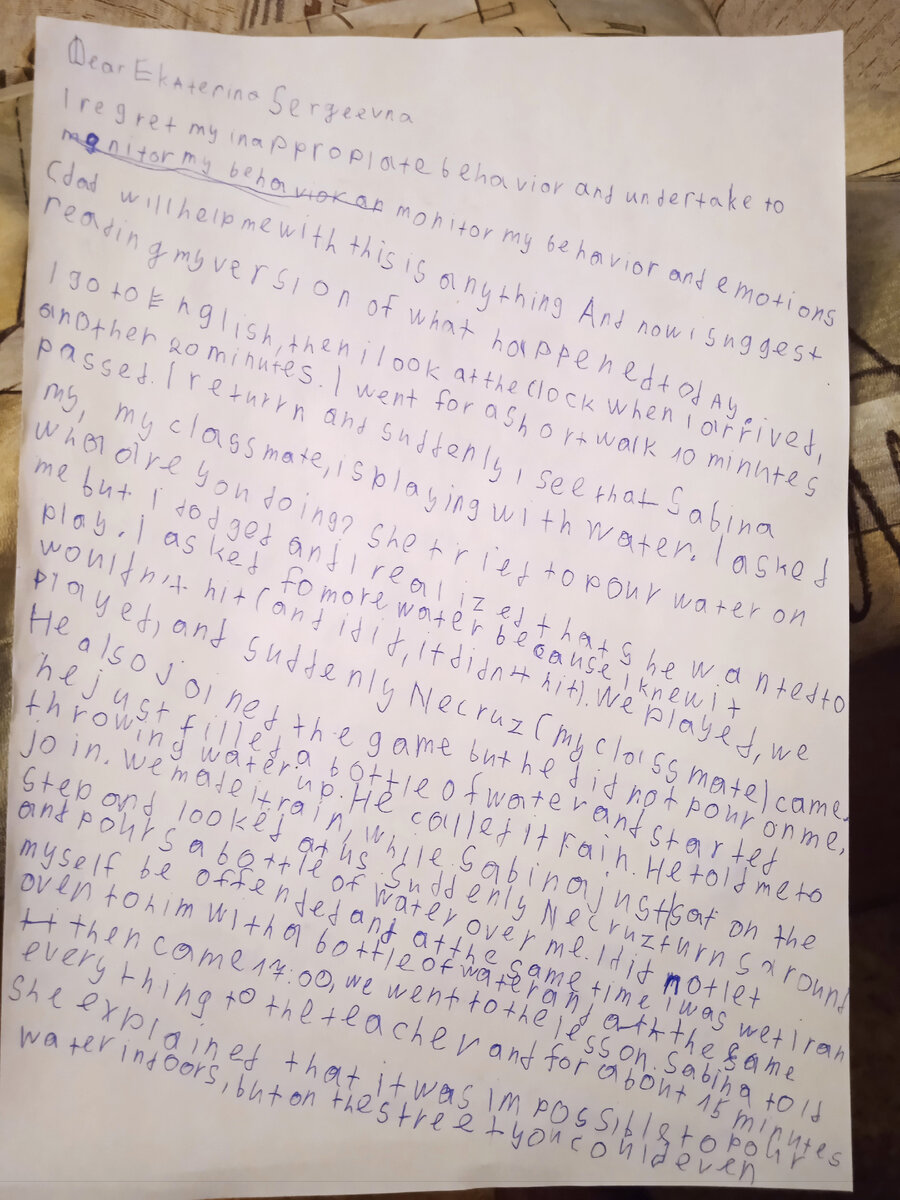 Dear Ekaterina Sergeevna
I regret my inappropiate behavior and undertake to
monitor my behavior an monitor my behavior and emotions
(dad will help me with this is anything And now i suggest
reading my version of what happened today.
I go to English, then i look at the clock when I arrived,
another 20 minutes. I went for a short walk 10 minutes
passed. I returrn and suddenly I see that Sabina
my, my classmate, is playing with water. I asked
what are you doing? She tried to pour water on
me but I dodged and I realized that she wanted to
play. I asked fo more water because I knew it
wouldn't hit (and it did, it didn't hit). We played, we
played, and suddenly Necruz (my classmate) came.
He also joined the game but he did not pour on me,
he just filled a bottle of water and started
throwing water up. He called it rain. He told me to
join. We made it rain, while Sabina just sat on the
step and looked at us. Suddenly Necruz turns around
and pours a bottle of water over me. I did not let
myself be offended and at the same time i was wet I ran
over to him with a bottle of water and at the same
then came 17:00, we went to the lesson. Sabina told
everything to the teacher and for about 15 minutes
she explained that it was impossible to pour
water indoors, but on the street you could even